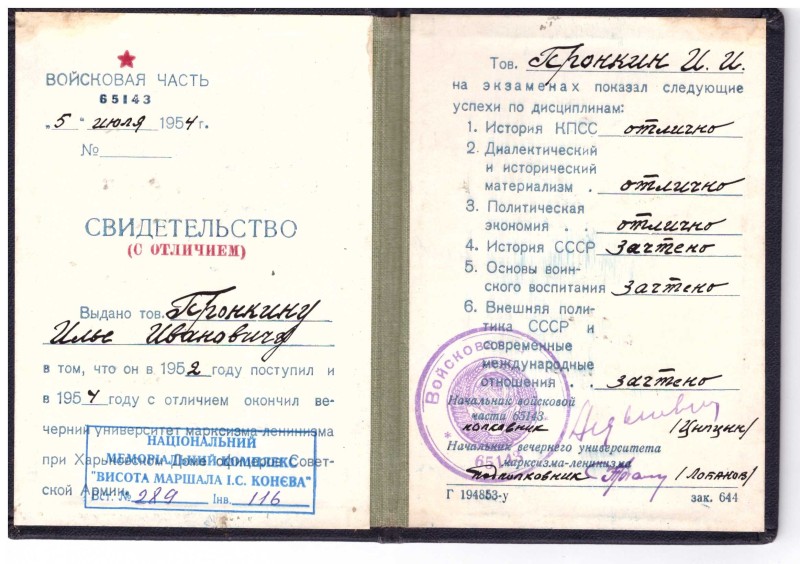 ВОЙСКОВАЯ ЧАСТЬ
65143
„5" июля 1954 г.
№
СВИДЕТЕЛЬСТВО
(С ОТЛИЧИЕМ)
Выдано тов. Пронкину
Илье Ивановичу
в том, что он в 1952 году поступил и
в 1954 году с отличием окончил ве-
черний университет марксизма-ленинизма
при Харьковском Доме офицеров Совет-
ской Армии.
НАЦІОНАЛЬНИЙ
МЕМОРІАЛЬНИЙ КОМПЛЕКС
"ВИСОТА МАРШАЛА І.С. КОНЄВА"
Вст. № 289 Інв. 116
Тов. Пронкин И. И.
на экзаменах показал следующие
успехи по дисциплинам:
1. История КПСС отлично
2. Диалектический
и исторический
материализм . отлично
3. Политическая
экономия . . отлично
4. История СССР зачтено
5. Основы воин-
ского воспитания зачтено
6. Внешняя поли-
тика СССР и
современные
международные
отношения . . зачтено
Войсковая
65143
Начальник войсковой
части 65143
полковник /Цыпкин/
Начальник вечернего университета
марксизма-ленинизма
подполковник /Лобанов/
Г 194853-у зак. 644